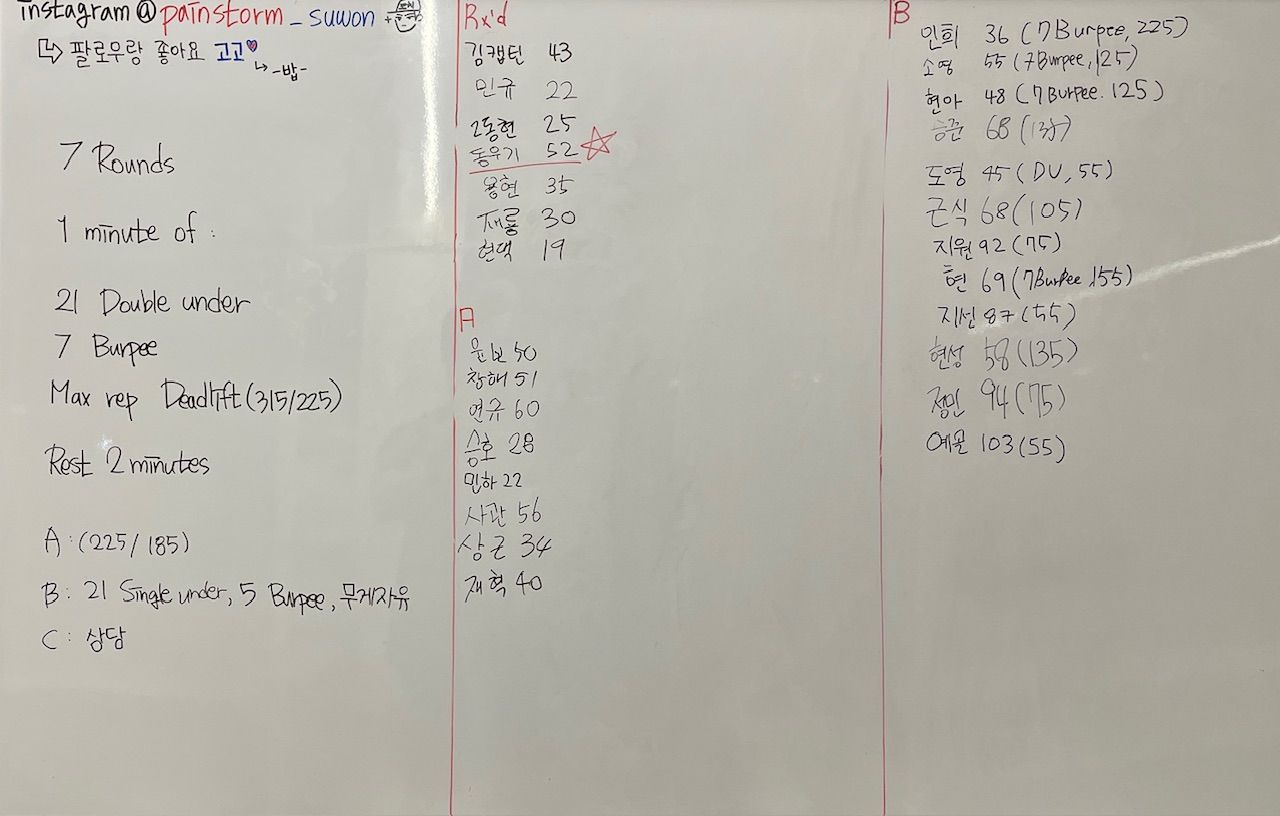 instagram@painstorm_suwon
팔로우랑 좋아요 고고
-밥-
7 Rounds
1 minute of :
21 Double under
7 Burpee
Max rep Deadlift(315/225)
Rest 2minutes
A : (225/185)
B : 21 Single under, 5 Burpee, 무게자유
C : 상담
Rx'd
김캡틴 43
민규 22
2동현 25
동우기 52
용현 35
재룡 30
현덕 19
A
윤보 50
창해 51
연규 60
승호 28
민하 22
사관 56
상근 34
재혁 40
B
민희 36 (7Burpee, 225)
소영 55 (7Burpee, 125)
현아 48 (7Burpee. 125)
승준 68
도영 45 (DU, 55)
근식 68 (105)
지원 92 (75)
현 69 (7Burpee 155)
지선 87 (55)
현성 58 (135)
정민 94 (75)
103 (55)